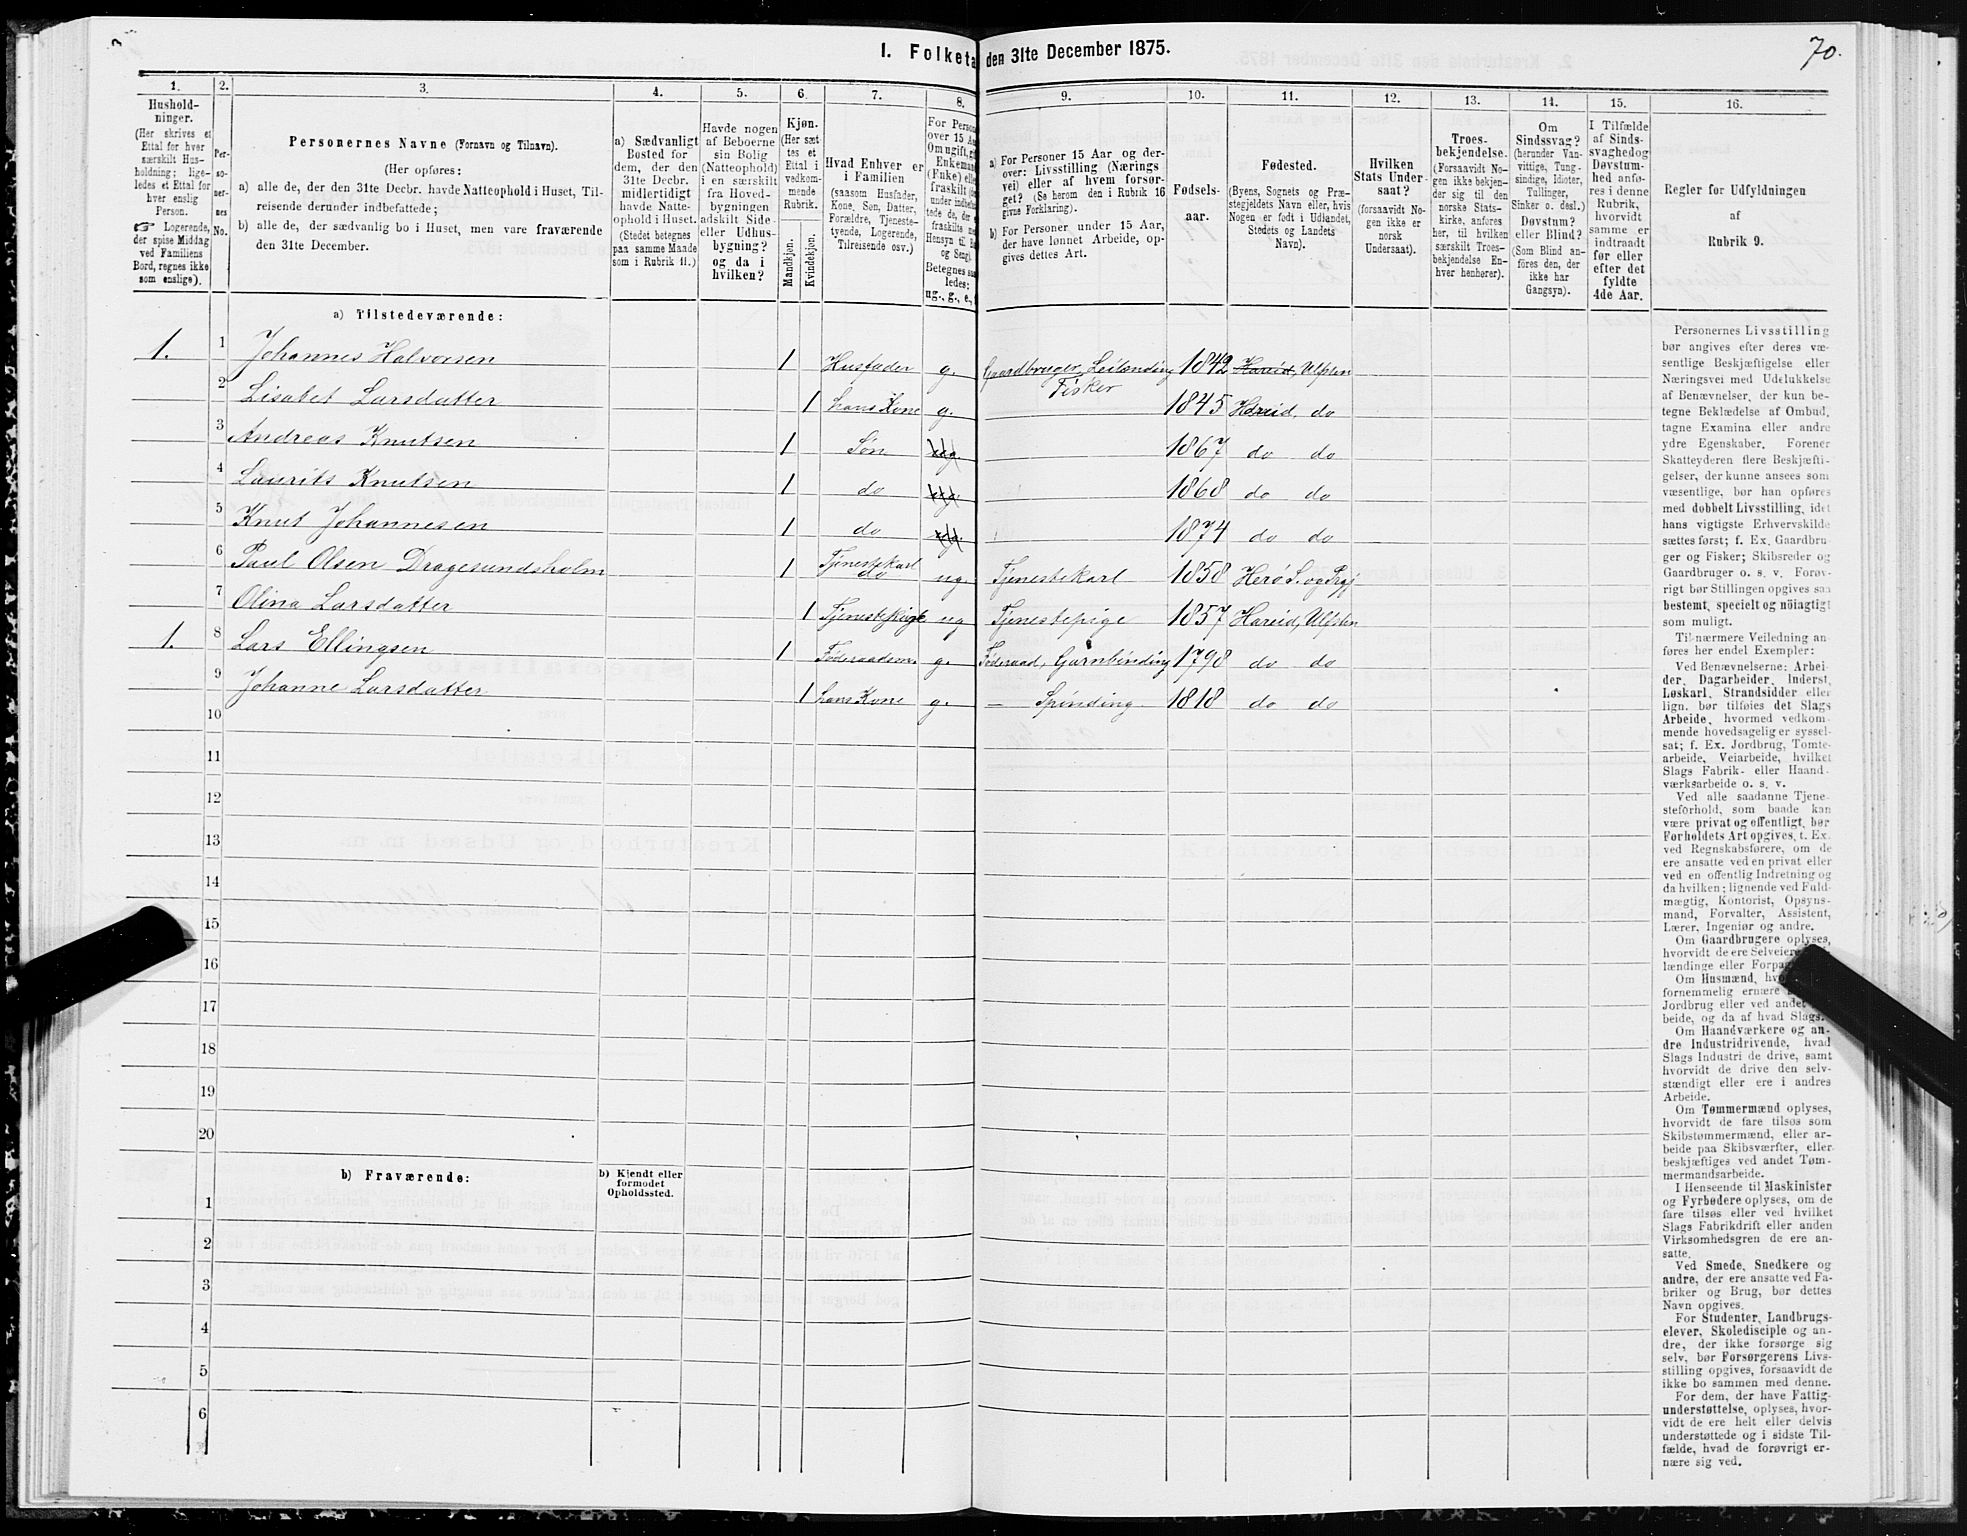 I. Folketa den 31te December 1875.
70.
1. 2. 3. 4. 5. 6. 7. 8. 9. 10. 11. 12. 13. 14. 15. 16.
Hushold-
ninger.
(Her skrives et
Ettal for hver
særskilt Hus-
holdning; lige-
ledes et Ettal for
hver enslig
Person.
☞ Logerende,
der spise Middag
ved Familiens
Bord, regnes ikke
som enslige).
Per-
so-
ner-
nes
No.
Personernes Navne (Fornavn og Tilnavn).
(Her opføres:
a) alle de, der den 31te Decbr. havde Natteophold i Huset, Til-
reisende derunder indbefattede;
b) alle de, der sædvanlig bo i Huset, men vare fraværende
den 31te December.
a) Sædvanligt
Bosted for
dem, der den
31te Decbr.
midlertidigt
havde Natte-
ophold i Huset.
(Stedet betegnes
paa samme Maade
som i Rubrik 11.)
Havde nogen
af Beboerne
sin Bolig
(Natteophold)
i en særskilt
fra Hoved-
bygningen
adskilt Side-
eller Udhus-
bygning?
og da i
hvilken?
Kjøn.
(Her sæt
tes et
Ettal i
vedkom-
mende
Rubrik.
Mandkjøn.
Kvindekjøn.
Hvad Enhver er
i Familien
(saasom Husfader,
Kone, Søn, Datter,
Forældre, Tjeneste-
tyende, Logerende,
Tilreisende osv.)
For Perso
over 15 Aa
Om ugift, gi
Enkeman
(Fnke) elle
fraskilt (o
under indbefat
tede de, der e
fraskilte m
Hensyn til B
og Seng).
Betegnes saa
ledes:
ug., g., e.,
a) For Personer 15 Aar og der-
over: Livsstilling (Nærings
vei) eller af hvem forsør-
get? (Se herom den i Rubrik 16
givne Forklaring).
b) For Personer under 15 Aar,
der have lønnet Arbeide, op-
gives dettes Art.
Fødsels-
aar.
Fødested.
(Byens, Sognets og Præ-
stegjeldets Navn eller, hvis
Nogen er født i Udlandet,
Stedets og Landets
Navn).
Hvilken
Stats Under-
saat?
(forsaavidt No-
gen ikke er
norsk
Undersaat).
Troes-
bekjendelse.
(Forsaavidt No-
gen ikke bekjen-
der sig til den
norske Stats-
kirke, anføres
her, til hvilken
særskilt Troes-
bekjendelse En-
hver henhører).
Om
Sindssvag?
(herunder Van-
vittige, Tung-
sindige, Idioter,
Tullinger,
Sinker o. desl.)
Døvstum?
eller Blind?
(Som Blind an-
føres den, der
ikke har
Gangsyn).
I Tilfælde
af Sinds-
svaghed og
Døvstum-
hed anfø-
res i denne
Rubrik,
hvorvidt
samme er
indtraadt
før eller
efter det
fyldte
4de Aar.
Regler for Udfyldningen
af
Rubrik 9.
a) Tilstedeværende:
1. 1 Johannes Halvorsen 1 Husfader g. Gaardbruger, Leilænding Fisker 1842 Hareid, Ulfsten
2 Lisabet Larsdatter 1 hans Kone g. 1845 Hareid, do
3 Andreas Knutsen 1 Søn ug. 1867 do do
4 Laurits Knutsen 1 do ug. 1868 do do
5 Knut Johannesen 1 do ug. 1874 do do
6 Paul Olsen Dragesundsholm 1 Tjenestekarl do ug. Tjenestekarl 1858 Herø S. og Prgj
7 Olina Larsdatter 1 Tjenestepige ug Tjenestepige 1857 Hareid, Ulfsten
1. 8 Lars Ellingsen 1 Føderaadsm. g. Føderaad, Garnbinding 1798 do do
9 Johanne Larsdatter 1 hans Kone g. — Spinding 1818 do do
10
11
12
13
14
15
16
17
18
19
20
b) Fraværende:
b) Kjendt eller
formodet
Opholdssted.
1
2
3
4
5
6
Personernes Livsstilling
bør angives efter deres væ-
sentlige Beskjæftigelse eller
Næringsvei med Udelukkelse
af Benævnelser, der kun be-
tegne Beklædelse af Ombud,
tagne Examina eller andre
ydre Egenskaber. Forener
Skatteyderen flere Beskjæfti-
gelser, der kunne ansees som
væsentlige, bør han opføres
med dobbelt Livsstilling, idet
hans vigtigste Erhvervskilde
sættes først; f. Ex. Gaardbru-
ger og Fisker; Skibsreder og
Gaardbruger o. s. v. Forøv-
rigt bør Stillingen opgives saa
bestemt, specielt og nöiagtigt
som muligt.
Til nærmere Veiledning an-
føres her endel Exempler:
Ved Benævnelserne: Arbei-
der, Dagarbeider, Inderst,
Løskarl, Strandsidder eller
lign. bør tilføies det Slags
Arbeide, hvormed vedkom-
mende hovedsagelig er syssel-
sat; f. Ex. Jordbrug, Tomte-
arbeide, Veiarbeide, hvilket
Slags Fabrik- eller Haand-
værksarbeide o. s. v.
Ved alle saadanne Tjene-
steforhold, som baade kan
være privat og offentligt, bør
Forholdets Art opgives, t. Ex.
ved Regnskabsførere, om de
ere ansatte ved en privat eller
ved en offentlig Indretning og
da hvilken; lignende ved Fuld-
mægtig, Kontorist, Opsyns-
mand, Forvalter, Assistent,
Lærer, Ingeniør og andre.
Om Gaardbrugere oplyses,
hvorvidt de ere Selveiere
lændinge eller Forpa
Om Husmænd, hvo
fornemmelig ernære
Jordbrug eller ved andet
beide, og da af hvad Slags.
Om Haandværkere og an-
dre Industridrivende, hvad
Slags Industri de drive, samt
hvorvidt de drive den selv-
stændigt eller ere i andres
Arbeide.
Om Tømmermænd oplyses,
hvorvidt de fare tilsøs som
Skibstømmermænd, eller ar-
beide paa Skibsværfter, eller
beskjæftiges ved andet Tøm-
mermandsarbeide.
I Henseende til Maskinister
og Fyrbødere oplyses, om de
fare tilsøs eller ved hvilket
Slags Fabrikdrift eller anden
Virksomhedsgren de ere an-
satte.
Ved Smede, Snedkere og
andre, der ere ansatte ved Fa-
briker og Brug, bør dettes
Navn opgives.
For Studenter, Landbrugs-
elever, Skoledisciple og an-
dre, der ikke forsørge sig
selv, bør Forsørgerens Livs-
stilling opgives, forsaavidt de
ikke bo sammen med denne.
For dem, der have Fattig-
understøttelse, oplyses, hvor-
vidt de ere helt eller delvis
understøttede og i sidste Til-
fælde, hvad de forøvrigt er-
nære sig ved.